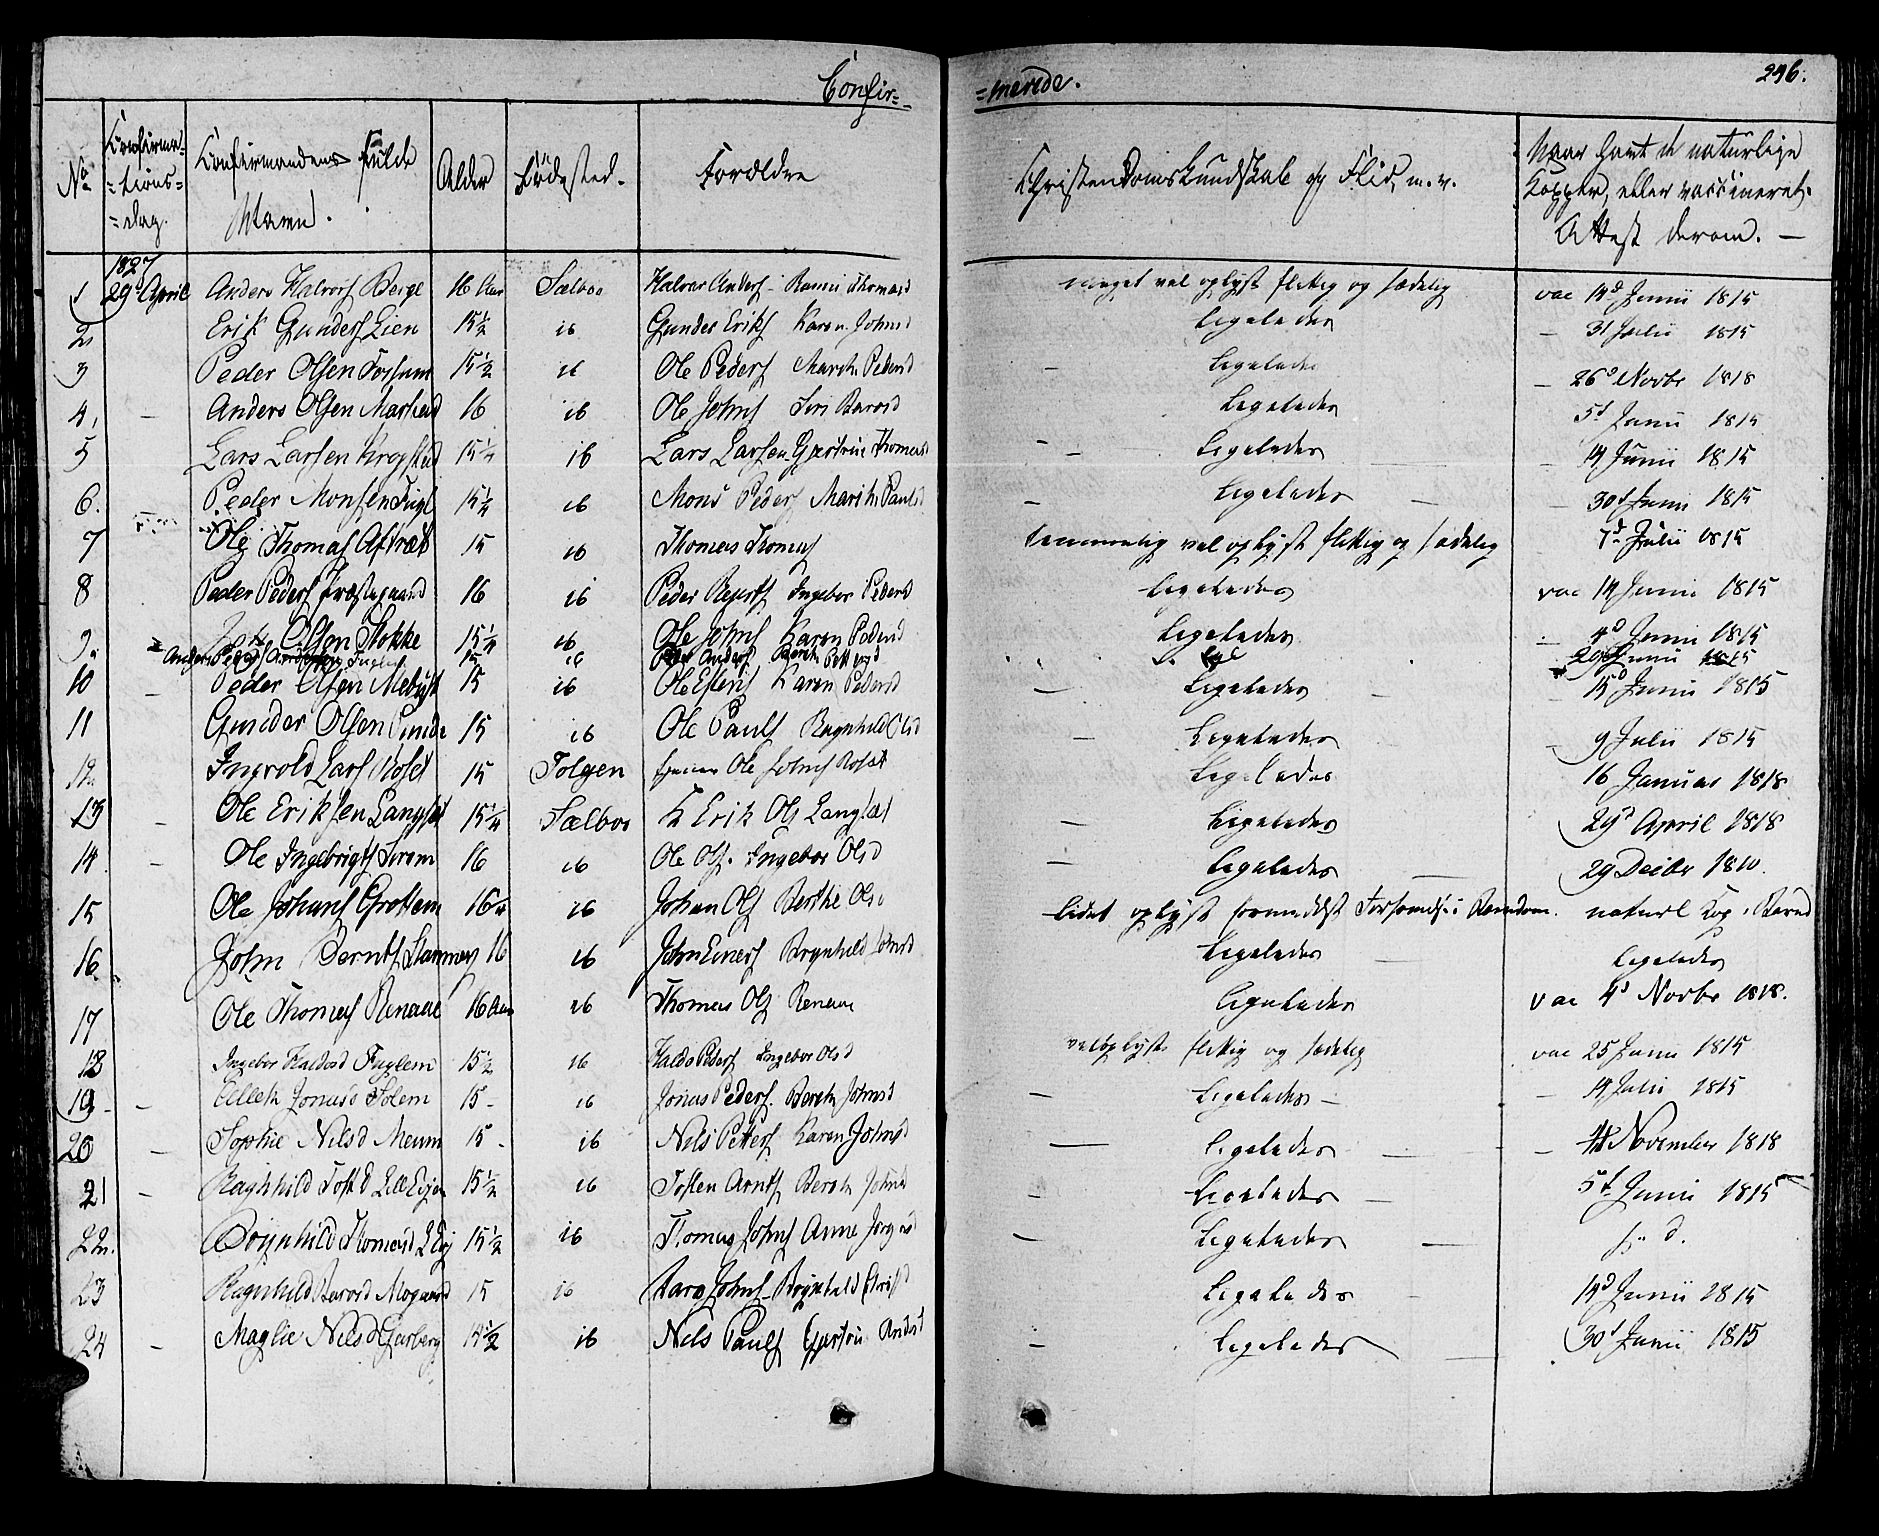 Confir=
=merede.
246.
No
Confirma=
=tions=
=dag.
Confirmandens Fulde
Navn.
Alder
Födested.
Forældre
Christendoms Kundskab og Flid, m. v.
Naar havt de naturlige
Kopper, eller vaccineret.
Attest derom. —
1827
1 29d April Anders Halvors Berge 16 Aar Sælboe Halvor Anders - Thomasd meget vel oplyst flittig og sædelig vac 14d Junii 1815
2 Erik Gunders Lien 15½ ib Gunder Eriks Karen Johnsd Ligeledes — 31 Julii 1815
3 Peder Olsen Fossum 15½ ib Ole Peders Marith Pedersd — Ligeledes — 26d Novbr 1818
4, — Anders Olsen 16 ib Ole Johns Siri Baarsd Ligeledes 5d Junii 1815
5 Lars Larsen Krogstad 15¼ ib Lars Larsen Gjertrue Thomasd — Ligeledes — 14 Junii 1815
6. Peder Monsen Fugl 15¼ ib Mons Peders Marith Paulsd — Ligeledes — 30d Junii 1815
7 Ole Thomas Aftret 15 ib Thomas Thomas temmelig vel oplyst flittig og sædelig 7d Julii 1815
8 Peder Peders Præstegaard 16 ib Peder Ingebor Pedersd Ligeledes vac 14 Junii 1815
9. Olsen Stokke 15¼ ib Ole Johns Karen Pedersd Ligeledes 4d Junii 1815
Anders Peders ib Anders 29 Junii 1815
10 — Peder Olsen Mebust 15 ib Ole Karen Pedersd — Ligeledes 15d Junii 1815
11 Gunder Olsen 15 ib Ole Pauls Ragnhild Olsd — Ligeledes — 9 Julii 1815
12. Ingvold Lars Roset 15 Tolgen Ole Johns Roset Ligeledes 16 Januar 1818
13 — Ole Eriksen Langset 15¼ Sælboe Erik Ols Langset — Ligeledes 29d April 1818
14 — Ole Ingebrigts 16 ib Ole Ols. Ingebor Olsd — Ligeledes 29 Decbr 1810.
15 Ole Johans Grøttem 16¼ ib Johan Ols Berthe Olsd lidet oplyst formedelst Forsømmelse i Barndom. naturl Kop i Barnd
16. John Bernts 16 ib John Ragnhild Johnsd Ligeledes — Ligeledes
17 Ole Thomas Renaae 16 Aar ib Thomas Ols Renaae Ligeledes vac 4d Novbr 1818.
18 Ingebor Haldosd Fuglem 15½ ib Haldo Peders Ingebor Olsd veloplyst flittig og sædelig vac 25 Junii 1815
19 — Jonasd Solem 15 - ib Jonas Peders. Bereth Johnsd — Ligeledes — — 14 Julii 1815
20 — Sophie Nilsd Meum 15 - ib Nils Petters Karen Johnsd — Ligeledes — — November 1818
21 — Ragnhild Tostd Lille Evjen 15½ ib Tosten Arnts Bereth Johnsd — Ligeledes — 5d Junii 1815
22. Ragnhild Thomasd L Evj 15½ ib Thomas Johns Anne Jørgensd — Ligeledes — d.
23 Ragnhild Baarsd Mogaard 15 ib Baar Johns - Ragnhild Ligeledes 14d Junii 1815
24 — Maglie Nilsd Garberg 14½ ib Nils Pauls Gjertru Andsd — Ligeledes 30d Junii 1815